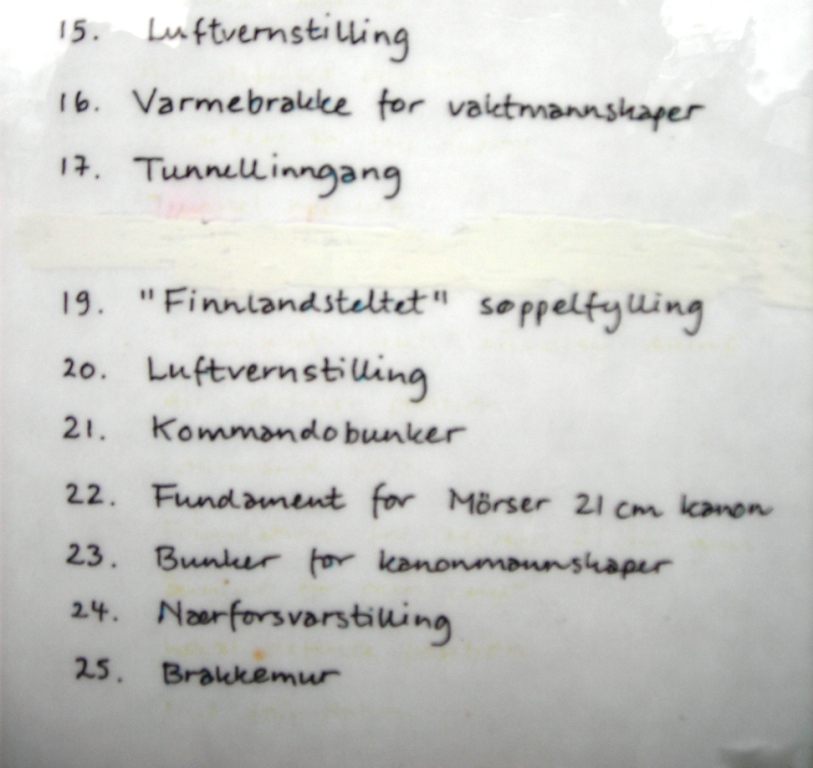 15. Luftvernstilling
16. Varmebrakke for vaktmannskaper
17. Tunnellinngang
19. "Finnlandsteltet" søppelfylling
20. Luftvernstilling
21. Kommandobunker
22. Fundament for Mörser 21 cm kanon
23. Bunker for kanonmannskaper
24. Nærforsvarstilling
25. Brakkemur